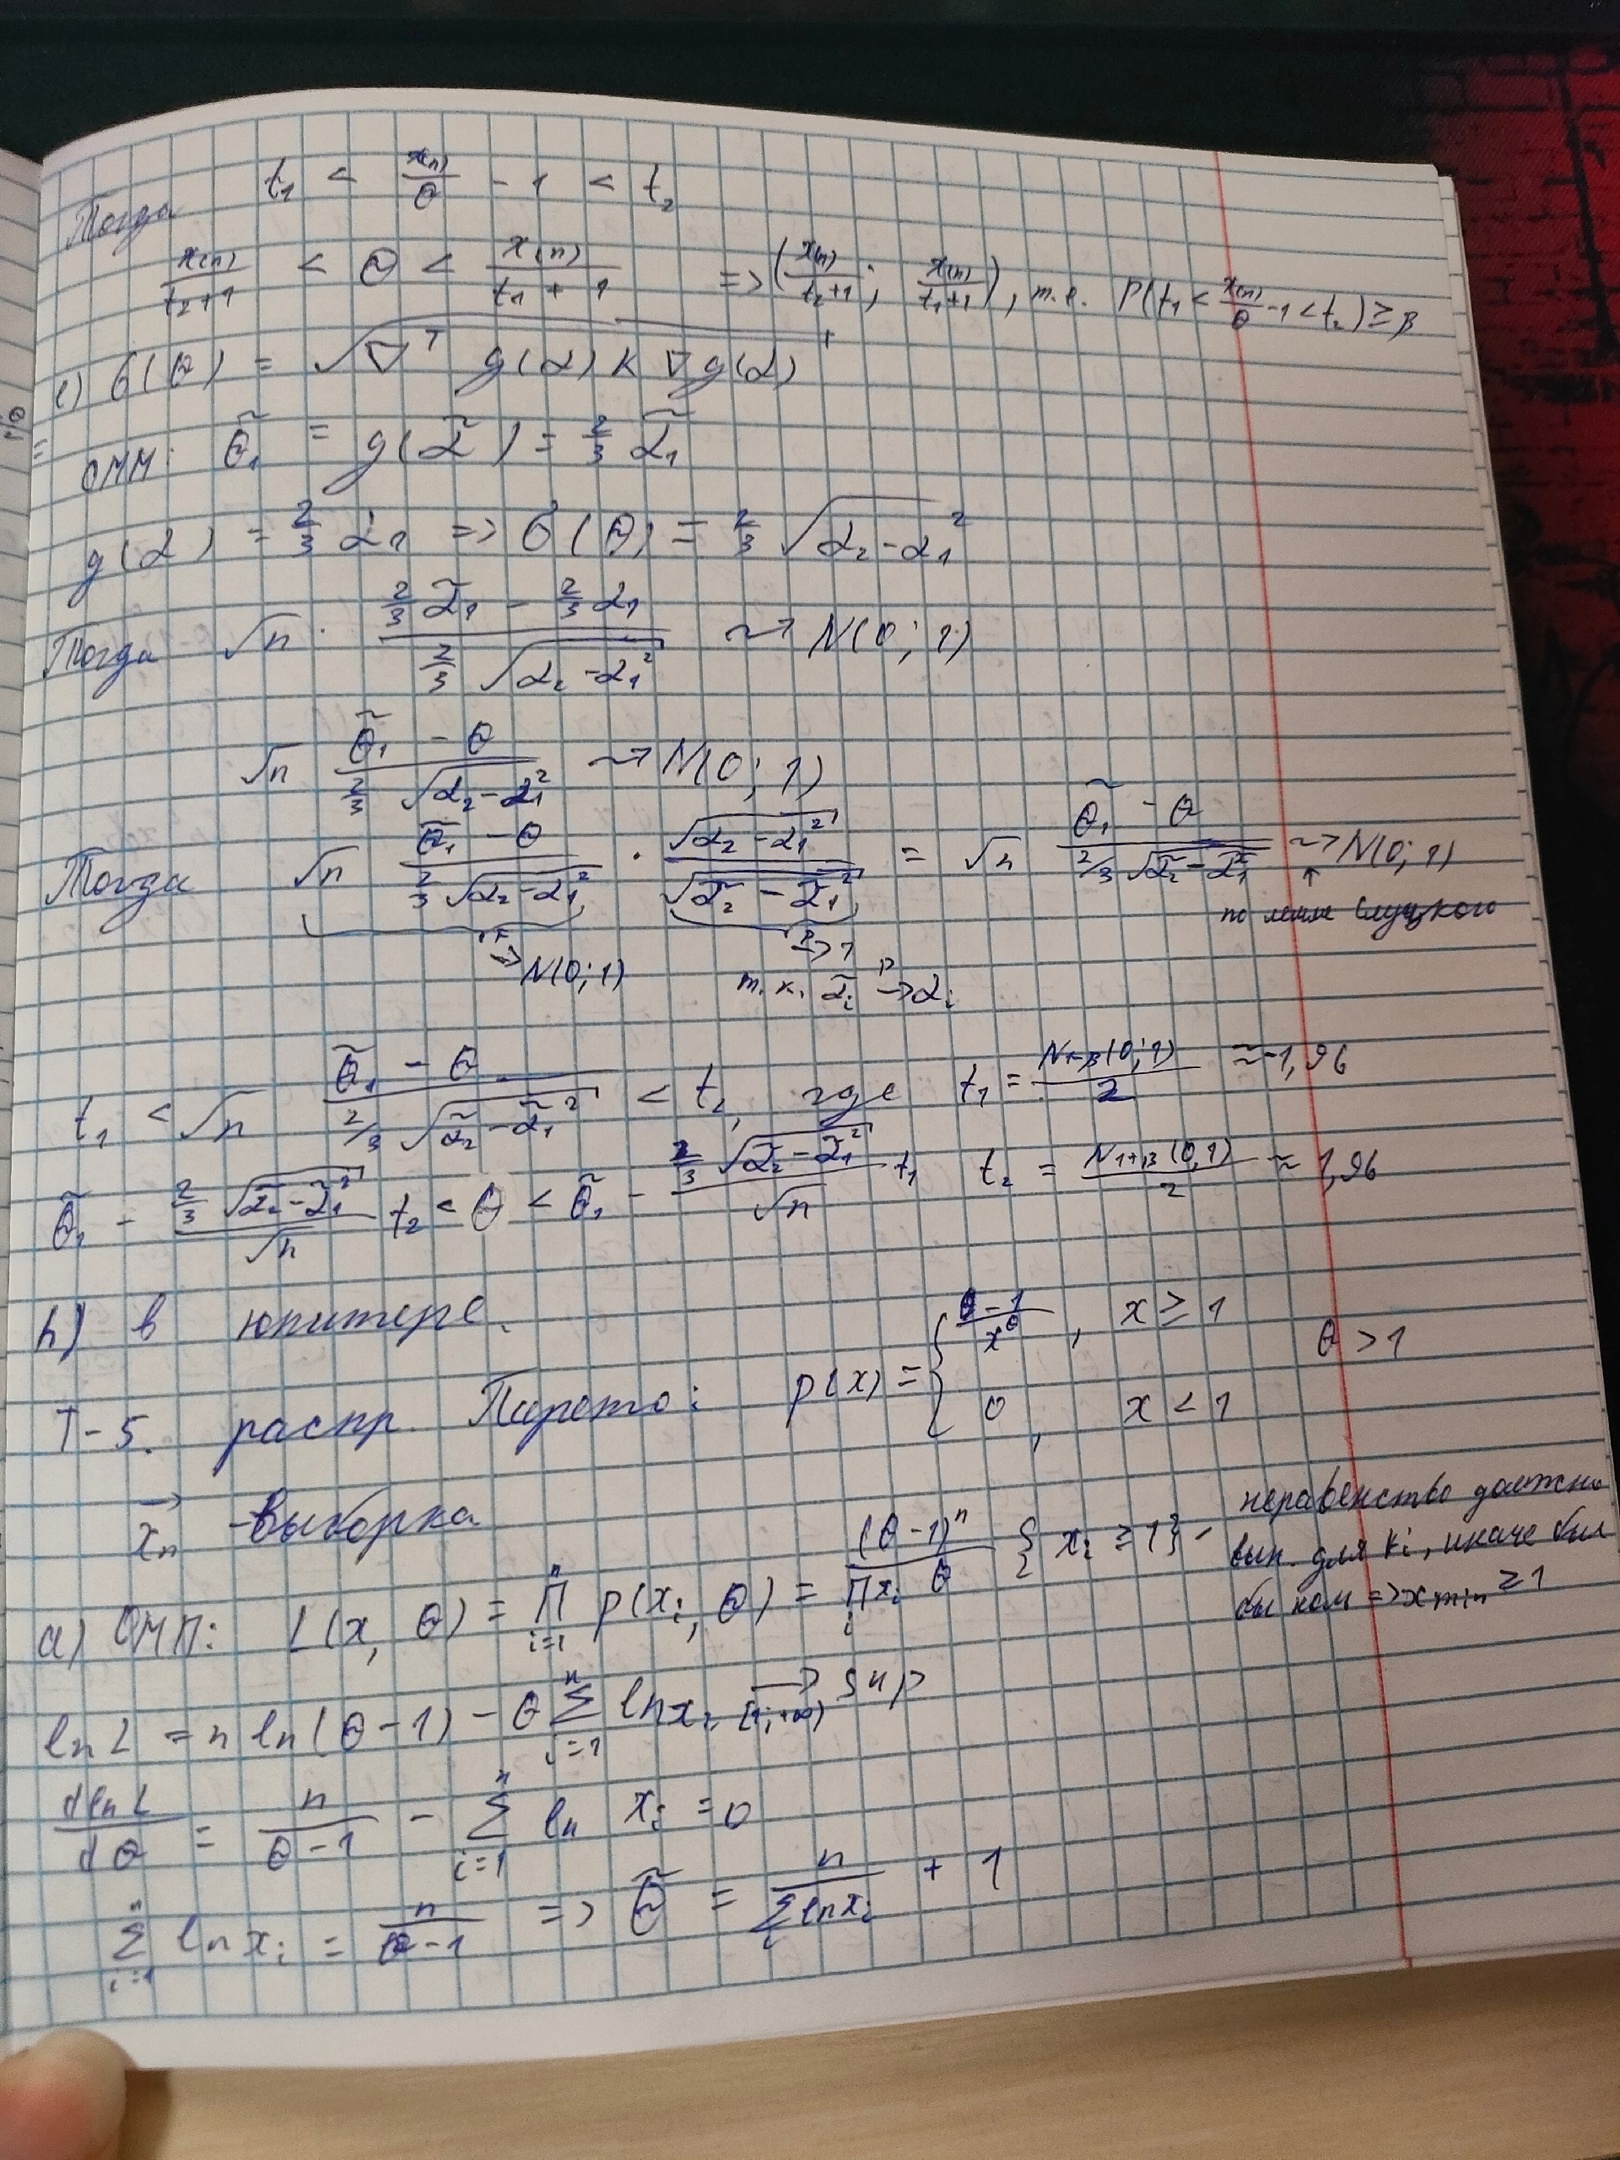 Тогда t₁ < x(n)/θ - 1 < t₂
x(n)/(t₂+1) < θ < x(n)/(t₁+1) => (x(n)/(t₂+1); x(n)/(t₁+1)), т.е. P(t₁ < x(n)/θ - 1 < t₂) ≥ β
e) σ(θ) = √(∇ᵀg(α) K ∇g(α))
ОММ: θ̃₁ = g(α̃) = 2/3 α̃₁
g(α) = 2/3 α₁ => σ(θ) = 2/3 √(α₂-α₁²)
Тогда √n · (2/3 α̃₁ - 2/3 α₁)/(2/3 √(α₂-α₁²)) ⤳ N(0; 1)
√n (θ̃₁ - θ)/(2/3 √(α₂-α₁²)) ⤳ N(0; 1)
Тогда √n (θ̃₁ - θ)/(2/3 √(α₂-α₁²)) · √(α₂-α₁²)/√(α̃₂-α̃₁²) = √n (θ̃₁ - θ)/(2/3 √(α̃₂-α̃₁²)) ⤳ N(0; 1)
↑
по лемме Слуцкого
⤳ N(0; 1) P→ 1
т.к. α̃ᵢ P→ αᵢ
t₁ < √n (θ̃₁ - θ)/(2/3 √(α̃₂-α̃₁²)) < t₂, где t₁ = N₁₋β(0; 1)/2 ≈ -1,96
θ̃₁ - (2/3 √(α̃₂-α̃₁²))/√n t₂ < θ < θ̃₁ - (2/3 √(α̃₂-α̃₁²))/√n t₁ t₂ = N₁₊β(0,1)/2 ≈ 1,96
h) в юпитере.
Т-5. распр. Парето: p(x) = { (θ-1)/x^θ, x ≥ 1 θ > 1
0, x < 1
x⃗ₙ - выборка
a) ОМП: L(x, θ) = ∏ᵢ₌₁ⁿ p(xᵢ, θ) = (θ-1)ⁿ/∏ᵢ xᵢ^θ {xᵢ ≥ 1} - неравенство должно
вып. для ∀i, иначе был
бы ноль => xmin ≥ 1
ln L = n ln(θ-1) - θ Σᵢ₌₁ⁿ ln xᵢ → [1; +∞) sup
d ln L/dθ = n/(θ-1) - Σᵢ₌₁ⁿ ln xᵢ = 0
Σᵢ₌₁ⁿ ln xᵢ = n/(θ-1) => θ̃ = n/Σᵢ ln xᵢ + 1